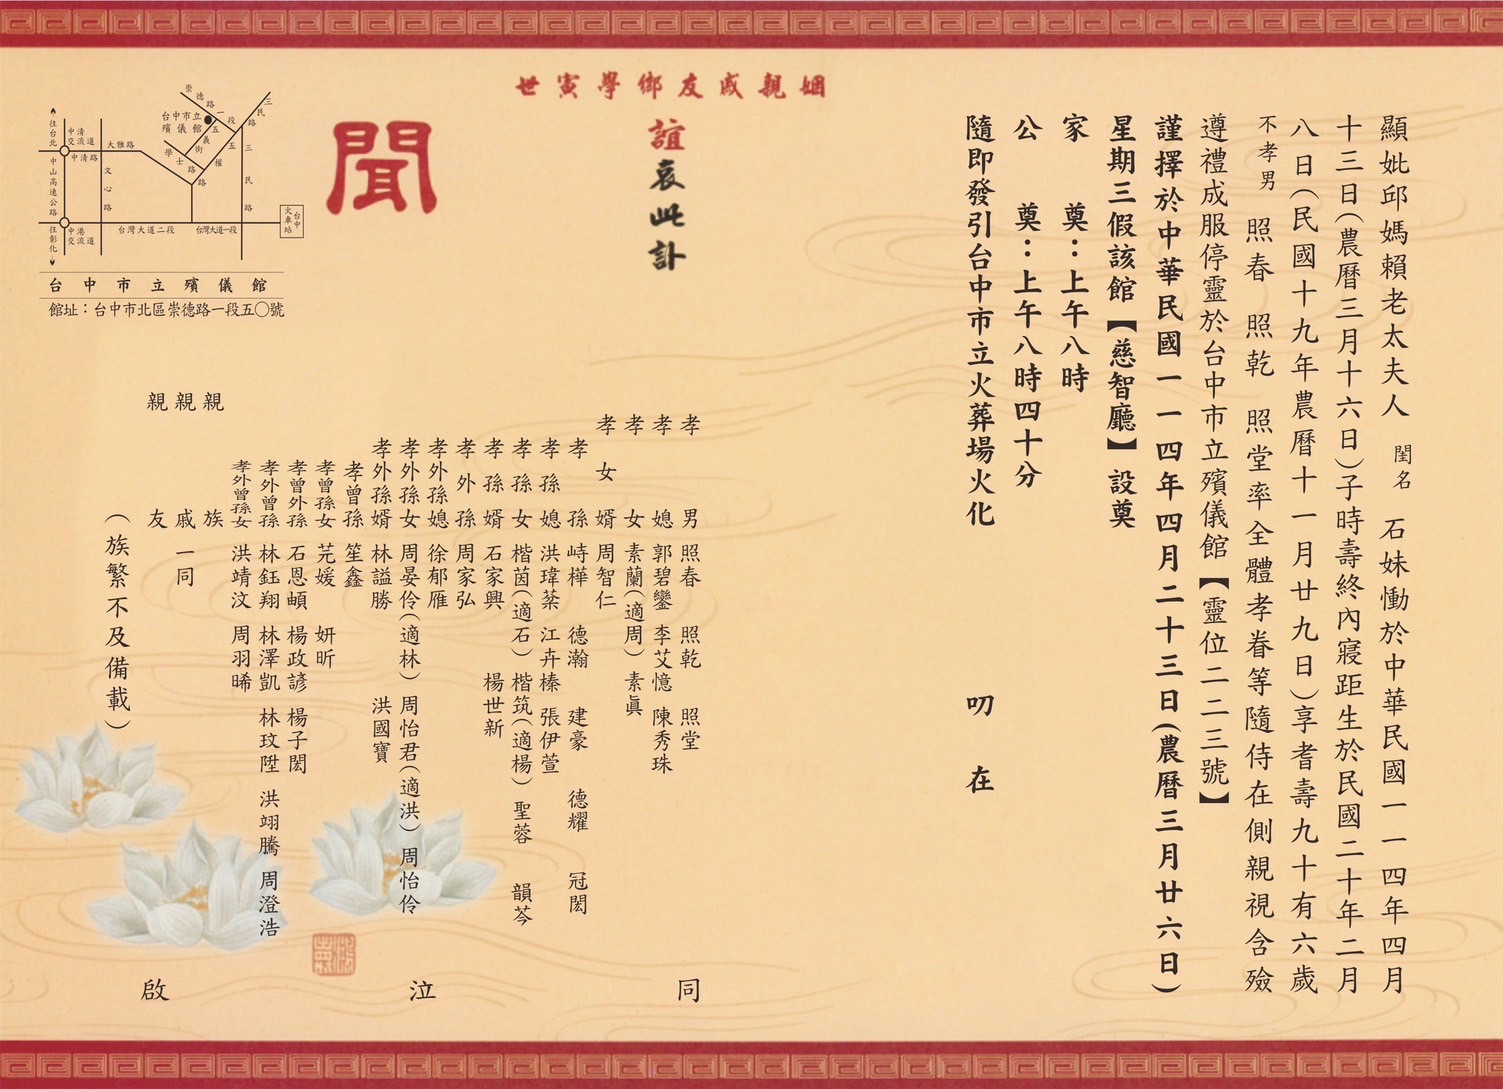 顯妣邱媽賴老太夫人 閨名 石妹慟於中華民國一一四年四月
十三日(農曆三月十六日)子時壽終內寢距生於民國二十年二月
八日(民國十九年農曆十一月廿九日)享耆壽九十有六歲
不孝男 照春 照乾 照堂率全體孝眷等隨侍在側親視含殮
遵禮成服停靈於台中市立殯儀館【靈位二二三號】
謹擇於中華民國一一四年四月二十三日(農曆三月廿六日)
星期三假該館【慈智廳】設奠
家 奠：上午八時
公 奠：上午八時四十分
隨即發引台中市立火葬場火化 叨 在
姻親戚友鄉學寅世
誼哀此訃
聞
孝 男 照春 照乾 照堂
孝 媳 郭碧鑾 李艾憶 陳秀珠
孝 女 素蘭(適周) 素眞
孝女婿 周智仁
孝 孫 峙樺 德瀚 建豪 德耀 冠閎
孝孫媳 洪瑋棻 江卉榛 張伊萱
孝孫女 楷茵(適石) 楷筑(適楊) 聖蓉 韻芩
孝孫婿 石家興 楊世新
孝外孫 周家弘
孝外孫媳 徐郁雁
孝外孫女 周晏伶(適林) 周怡君(適洪) 周怡伶
孝外孫婿 林謚勝 洪國寶
孝曾孫 笙鑫
孝曾孫女 芫媛 妍昕
孝曾外孫 石恩頔 楊政諺 楊子閎
孝外曾孫 林鈺翔 林澤凱 林玟陞 洪翊騰 周澄浩
孝外曾孫女 洪靖汶 周羽晞
親 族
親 戚 一同
親 友
(族繁不及備載)
同 泣 啟
崇德路一段
三民路
台中市立
殯儀館
五義街
五權路
學士路
三民路
大雅路
中清路
中清
交流道
往台北
中山高速公路
往彰化
文心路
中港
交流道
台灣大道二段
台灣大道一段
台中
火車站
台中市立殯儀館
館址：台中市北區崇德路一段五〇號